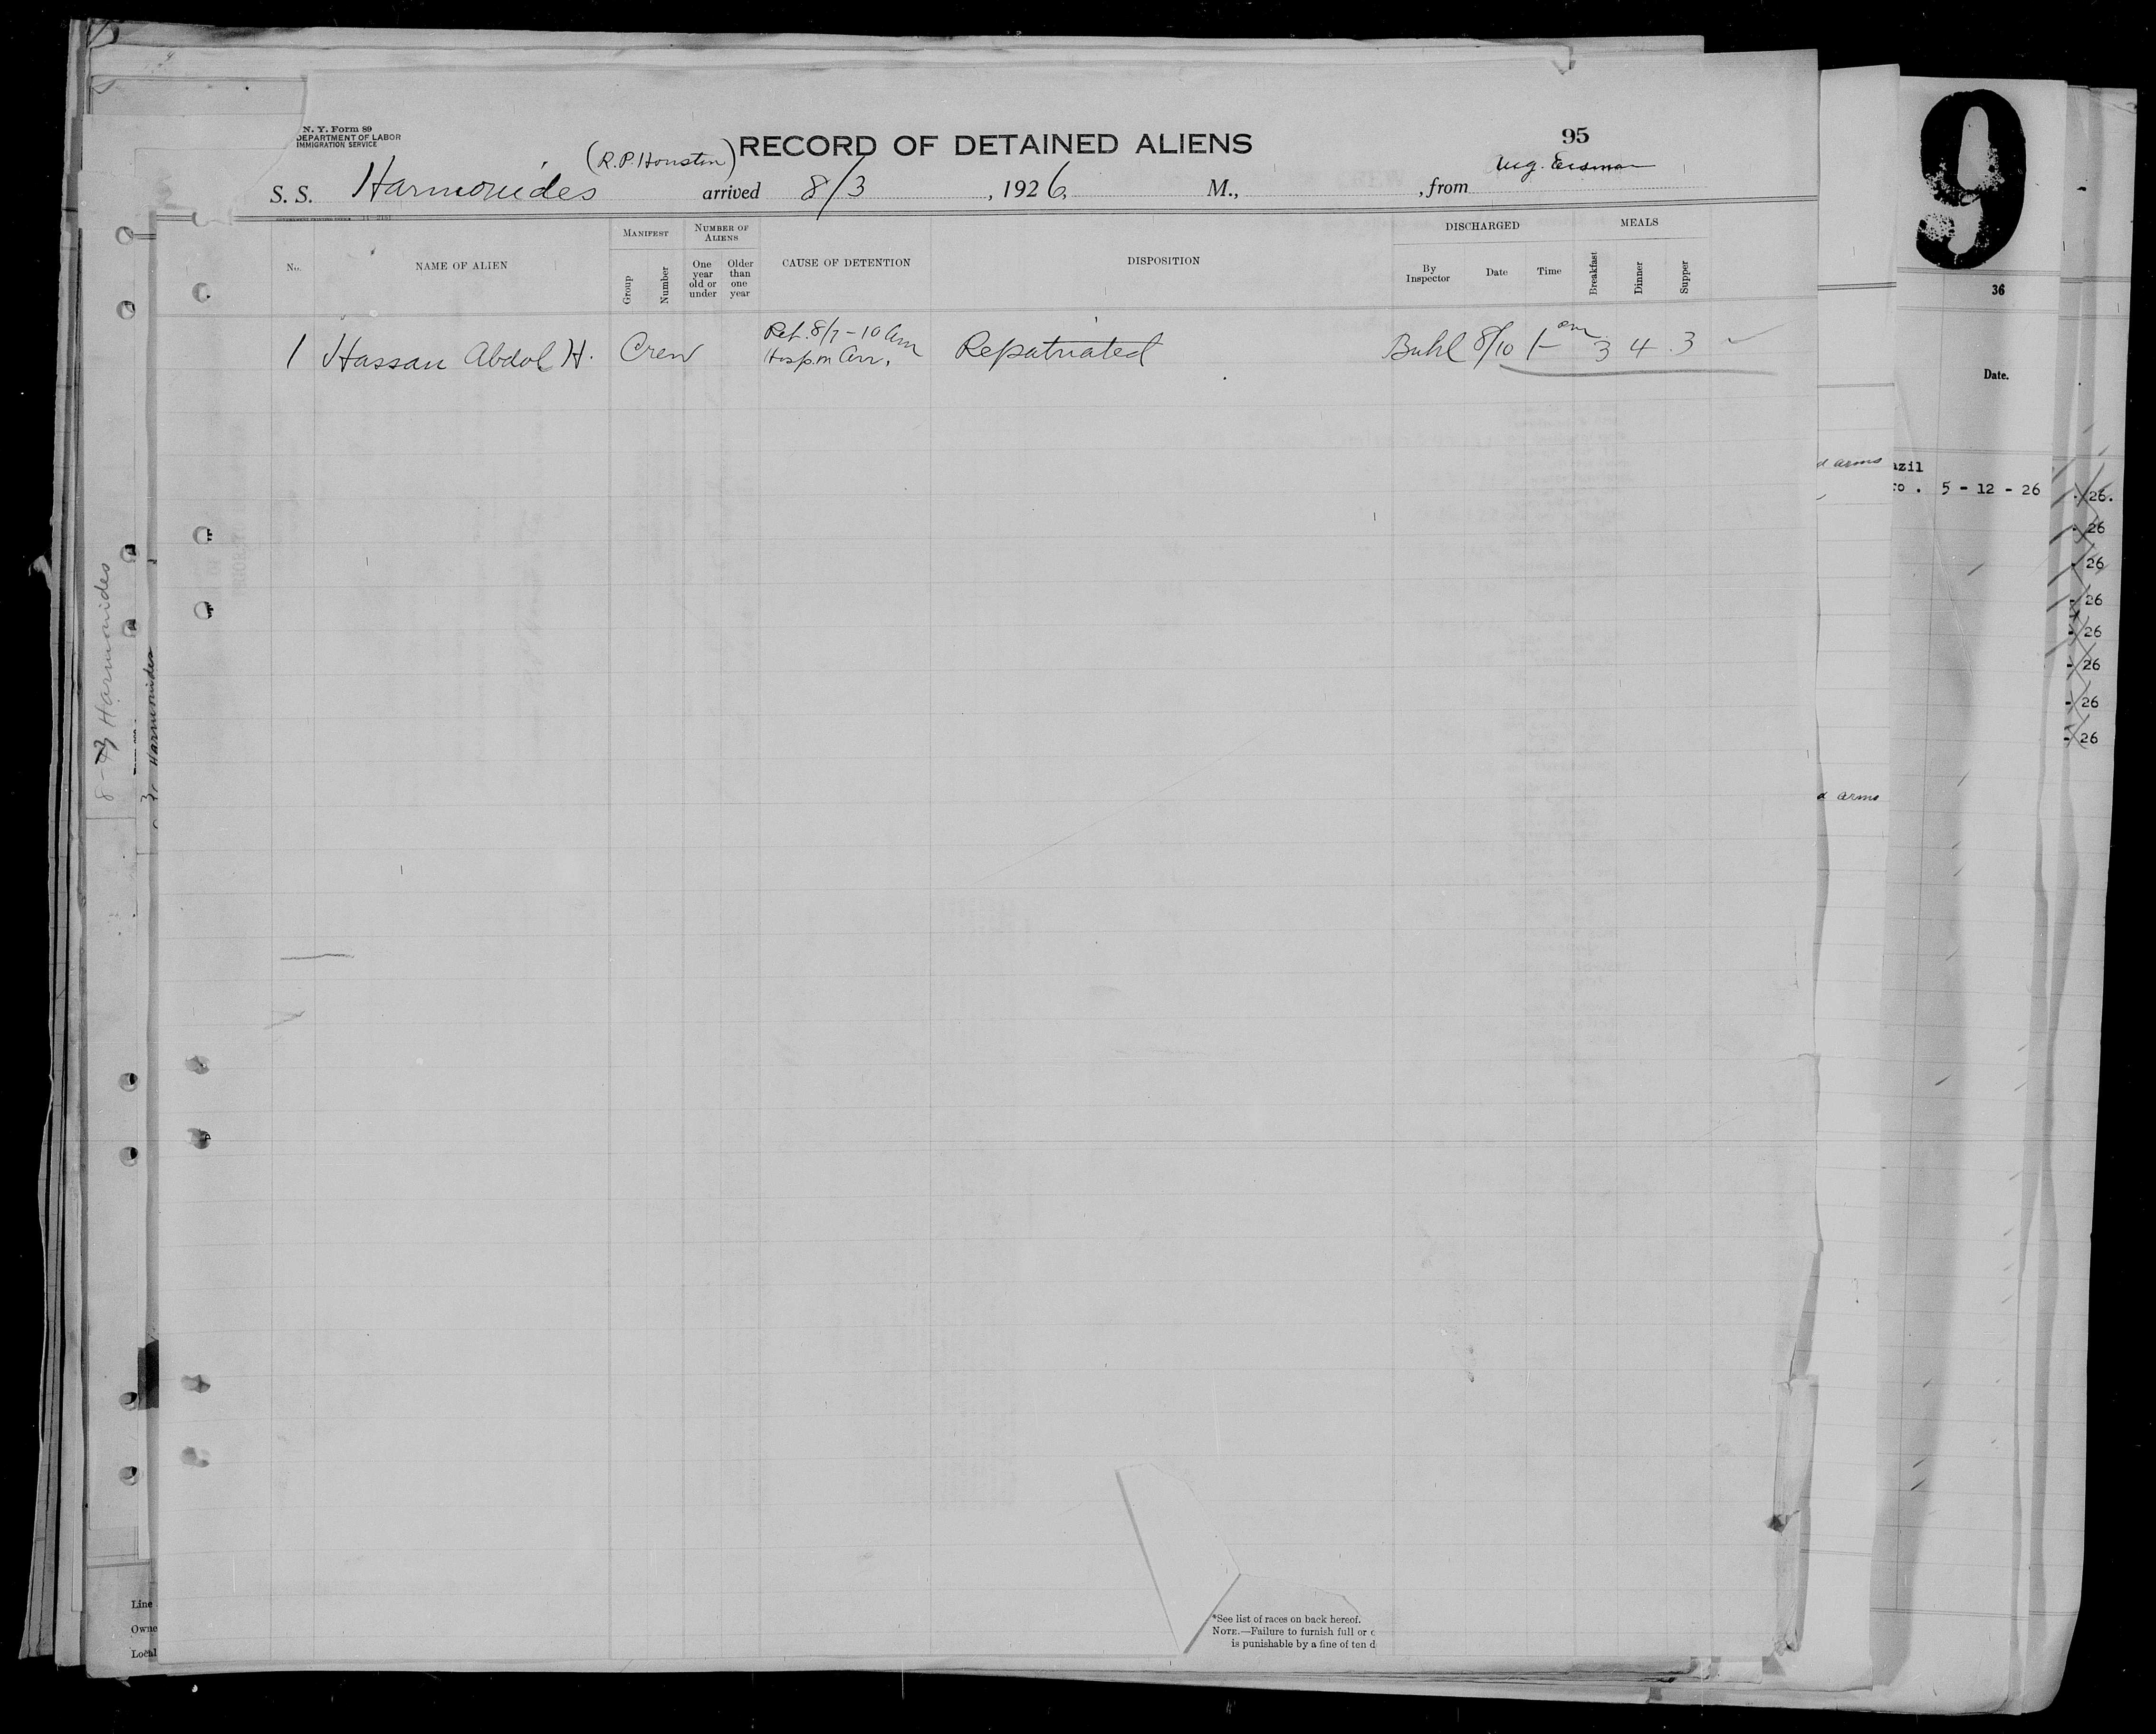 N. Y. Form 89
DEPARTMENT OF LABOR
IMMIGRATION SERVICE
RECORD OF DETAINED ALIENS
95
(R.P. Houston)
S. S. Harmonides arrived 8/3, 1926, M., , from
No.
NAME OF ALIEN
MANIFEST
Group
Number
NUMBER OF ALIENS
One year old or under
Older than one year
CAUSE OF DETENTION
DISPOSITION
DISCHARGED
By Inspector
Date
Time
MEALS
Breakfast
Dinner
Supper
1 Hassan Abdol H. Crew Ret. 8/7 - 10 am Repatriated Buhl 8/10 1- 3 4 3
Hosp. on Arr.
9
36
Date.
azil
ro . 5 - 12 - 26
d arms
d arms
26.
26
26
26
26
26
26
26
8-3 Harmonides
Harmonides
Line
Owne
Local
*See list of races on back hereof.
NOTE.—Failure to furnish full or c
is punishable by a fine of ten d